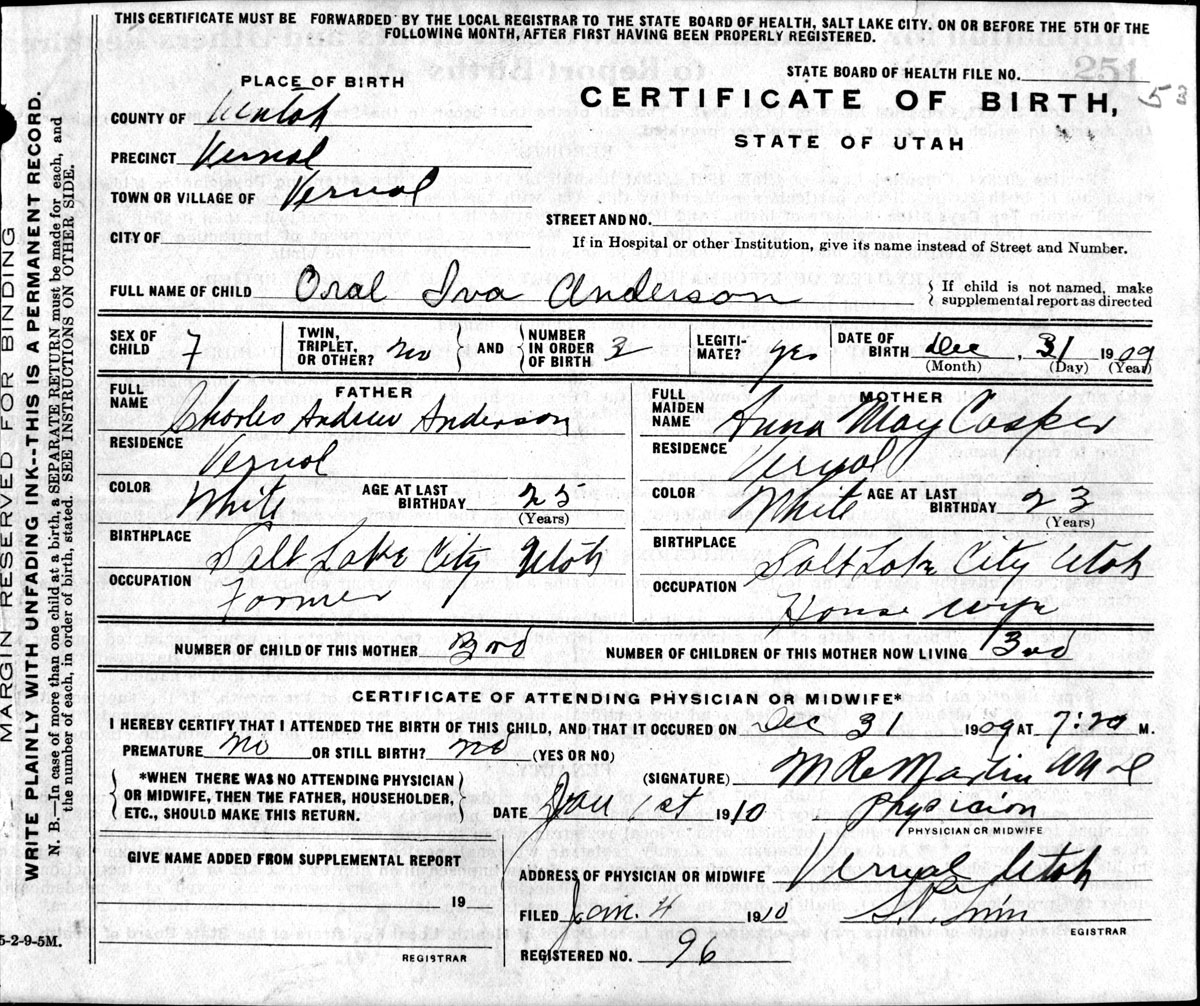 THIS CERTIFICATE MUST BE FORWARDED BY THE LOCAL REGISTRAR TO THE STATE BOARD OF HEALTH, SALT LAKE CITY, ON OR BEFORE THE 5TH OF THE
FOLLOWING MONTH, AFTER FIRST HAVING BEEN PROPERLY REGISTERED.
251
STATE BOARD OF HEALTH FILE NO.
PLACE OF BIRTH
CERTIFICATE OF BIRTH,
STATE OF UTAH
COUNTY OF Uintah
PRECINCT Vernal
TOWN OR VILLAGE OF Vernal
STREET AND NO.
CITY OF
If in Hospital or other Institution, give its name instead of Street and Number.
FULL NAME OF CHILD Oral Iva Anderson
{ If child is not named, make
supplemental report as directed
SEX OF CHILD F
TWIN, TRIPLET, OR OTHER? no
AND
NUMBER IN ORDER OF BIRTH 3
LEGITIMATE? yes
DATE OF BIRTH Dec, 31 1909
(Month) (Day) (Year)
FATHER
FULL NAME Charles Andrew Anderson
RESIDENCE Vernal
COLOR White AGE AT LAST BIRTHDAY 25
(Years)
BIRTHPLACE Salt Lake City Utah
OCCUPATION Farmer
MOTHER
FULL MAIDEN NAME Anna May Casper
RESIDENCE Vernal
COLOR White AGE AT LAST BIRTHDAY 23
(Years)
BIRTHPLACE Salt Lake City Utah
OCCUPATION House wife
NUMBER OF CHILD OF THIS MOTHER 3rd
NUMBER OF CHILDREN OF THIS MOTHER NOW LIVING 3rd
CERTIFICATE OF ATTENDING PHYSICIAN OR MIDWIFE*
I HEREBY CERTIFY THAT I ATTENDED THE BIRTH OF THIS CHILD, AND THAT IT OCCURED ON Dec 31 1909 AT 7:20 M.
PREMATURE no OR STILL BIRTH? no (YES OR NO)
*WHEN THERE WAS NO ATTENDING PHYSICIAN
OR MIDWIFE, THEN THE FATHER, HOUSEHOLDER,
ETC., SHOULD MAKE THIS RETURN.
(SIGNATURE) Martin
DATE Jan 1st 1910
Physician
PHYSICIAN OR MIDWIFE
GIVE NAME ADDED FROM SUPPLEMENTAL REPORT
19
REGISTRAR
ADDRESS OF PHYSICIAN OR MIDWIFE Vernal Utah
FILED Jan. 4 1910
EGISTRAR
REGISTERED NO. 96
5-2-9-5M.
MARGIN RESERVED FOR BINDING
WRITE PLAINLY WITH UNFADING INK--THIS IS A PERMANENT RECORD.
N. B.—In case of more than one child at a birth, SEPARATE RETURN must be made for each, and
the number of each, in order of birth, stated. SEE INSTRUCTIONS ON OTHER SIDE.